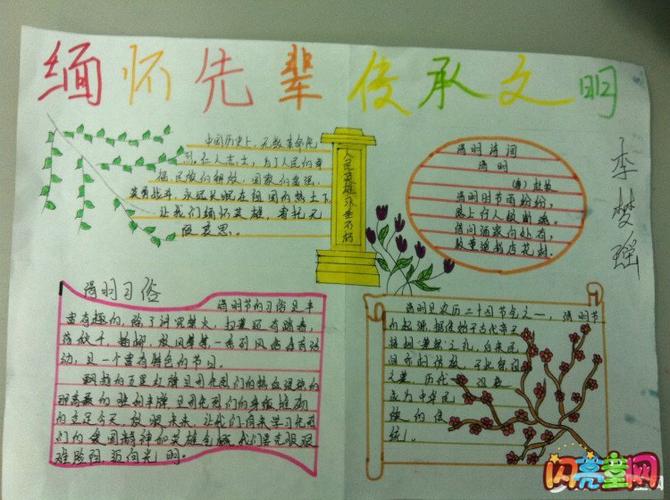 缅怀先辈传承文明
李梦瑶
中国历史上,无数革命先
烈,仁人志士,为了人民的幸
福,民族的解放,国家的富强,
英勇战斗,永远长眠在祖国的热土下,
让我们缅怀英雄,寄托无
限哀思。
人民英雄永垂不朽
清明诗词
清明
(唐)杜牧
清明时节雨纷纷,
路上行人欲断魂,
借问酒家何处有,
牧童遥指杏花村.
清明习俗
清明节的习俗是丰
富有趣的,除了讲究禁火,扫墓还有踏青,
荡秋千,插柳,放风筝等一系列风俗体育活
动,是一个富有特色的节日.
的立足今天,放眼未来,让我们向革命先烈
们的爱国精神和英雄
难险阻,迈向光明.
清明是农历二十四节气之一,清明节
的起源,据传始于古代帝王
将相"墓祭"之礼,后来民
间亦仿效,
历代沿袭
成为中华民
族的传
统.
闪亮童网